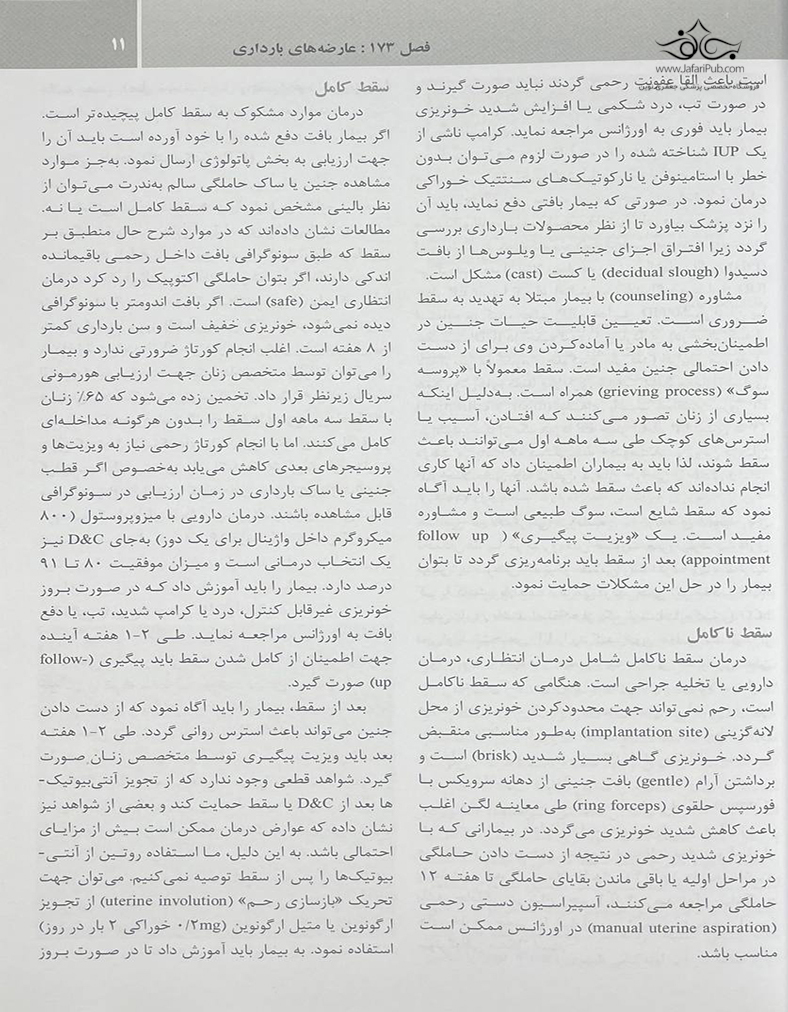 فصل ۱۷۳: عارضه‌های بارداری
۱۱
www.JafariPub.com
فروشگاه تخصصی پزشکی جعفری نوین
است باعث القا عفونت رحمی گردند نباید صورت گیرند و
در صورت تب، درد شکمی یا افزایش شدید خونریزی
بیمار باید فوری به اورژانس مراجعه نماید. کرامپ ناشی از
یک IUP شناخته شده را در صورت لزوم می‌توان بدون
خطر با استامینوفن یا نارکوتیک‌های سنتتیک خوراکی
درمان نمود. در صورتی که بیمار بافتی دفع نماید، باید آن
را نزد پزشک بیاورد تا از نظر محصولات بارداری بررسی
گردد زیرا افتراق اجزای جنینی یا ویلوس‌ها از بافت
دسیدوا (decidual slough) یا کست (cast) مشکل است.
مشاوره (counseling) با بیمار مبتلا به تهدید به سقط
ضروری است. تعیین قابلیت حیات جنین در
اطمینان‌بخشی به مادر یا آماده‌کردن وی برای از دست
دادن احتمالی جنین مفید است. سقط معمولاً با «پروسه
سوگ» (grieving process) همراه است. به‌دلیل اینکه
بسیاری از زنان تصور می‌کنند که افتادن، آسیب یا
استرس‌های کوچک طی سه ماهه اول می‌توانند باعث
سقط شوند، لذا باید به بیماران اطمینان داد که آنها کاری
انجام نداده‌اند که باعث سقط شده باشد. آنها را باید آگاه
نمود که سقط شایع است، سوگ طبیعی است و مشاوره
مفید است. یک «ویزیت پیگیری» (follow up
appointment) بعد از سقط باید برنامه‌ریزی گردد تا بتوان
بیمار را در حل این مشکلات حمایت نمود.
سقط ناکامل
درمان سقط ناکامل شامل درمان انتظاری، درمان
دارویی یا تخلیه جراحی است. هنگامی که سقط ناکامل
است، رحم نمی‌تواند جهت محدودکردن خونریزی از محل
لانه‌گزینی (implantation site) به‌طور مناسبی منقبض
گردد. خونریزی گاهی بسیار شدید (brisk) است و
برداشتن آرام (gentle) بافت جنینی از دهانه سرویکس با
فورسپس حلقوی (ring forceps) طی معاینه لگن اغلب
باعث کاهش شدید خونریزی می‌گردد. در بیمارانی که با
خونریزی شدید رحمی در نتیجه از دست دادن حاملگی
در مراحل اولیه یا باقی ماندن بقایای حاملگی تا هفته ۱۲
حاملگی مراجعه می‌کنند، آسپیراسیون دستی رحمی
(manual uterine aspiration) در اورژانس ممکن است
مناسب باشد.
سقط کامل
درمان موارد مشکوک به سقط کامل پیچیده‌تر است.
اگر بیمار بافت دفع شده را با خود آورده است باید آن را
جهت ارزیابی به بخش پاتولوژی ارسال نمود. به‌جز موارد
مشاهده جنین یا ساک حاملگی سالم به‌ندرت می‌توان از
نظر بالینی مشخص نمود که سقط کامل است یا نه.
مطالعات نشان داده‌اند که در موارد شرح حال منطبق بر
سقط که طبق سونوگرافی بافت داخل رحمی باقیمانده
اندکی دارند، اگر بتوان حاملگی اکتوپیک را رد کرد درمان
انتظاری ایمن (safe) است. اگر بافت اندومتر با سونوگرافی
دیده نمی‌شود، خونریزی خفیف است و سن بارداری کمتر
از ۸ هفته است. اغلب انجام کورتاژ ضرورتی ندارد و بیمار
را می‌توان توسط متخصص زنان جهت ارزیابی هورمونی
سریال زیرنظر قرار داد. تخمین زده می‌شود که ۶۵٪ زنان
با سقط سه ماهه اول سقط را بدون هرگونه مداخله‌ای
کامل می‌کنند. اما با انجام کورتاژ رحمی نیاز به ویزیت‌ها و
پروسیجرهای بعدی کاهش می‌یابد به‌خصوص اگر قطب
جنینی یا ساک بارداری در زمان ارزیابی در سونوگرافی
قابل مشاهده باشند. درمان دارویی با میزوپروستول (۸۰۰
میکروگرم داخل واژینال برای یک دوز) به‌جای D&C نیز
یک انتخاب درمانی است و میزان موفقیت ۸۰ تا ۹۱
درصد دارد. بیمار را باید آموزش داد که در صورت بروز
خونریزی غیرقابل کنترل، درد یا کرامپ شدید، تب، یا دفع
بافت به اورژانس مراجعه نماید. طی ۲-۱ هفته آینده
جهت اطمینان از کامل شدن سقط باید پیگیری (follow-
up) صورت گیرد.
بعد از سقط، بیمار را باید آگاه نمود که از دست دادن
جنین می‌تواند باعث استرس روانی گردد. طی ۲-۱ هفته
بعد باید ویزیت پیگیری توسط متخصص زنان صورت
گیرد. شواهد قطعی وجود ندارد که از تجویز آنتی‌بیوتیک-
ها بعد از D&C یا سقط حمایت کند و بعضی از شواهد نیز
نشان داده که عوارض درمان ممکن است بیش از مزایای
احتمالی باشد. به این دلیل، ما استفاده روتین از آنتی-
بیوتیک‌ها را پس از سقط توصیه نمی‌کنیم. می‌توان جهت
تحریک «بازسازی رحم» (uterine involution) از تجویز
ارگونوین یا متیل ارگونوین (۰/۲mg خوراکی ۲ بار در روز)
استفاده نمود. به بیمار باید آموزش داد تا در صورت بروز